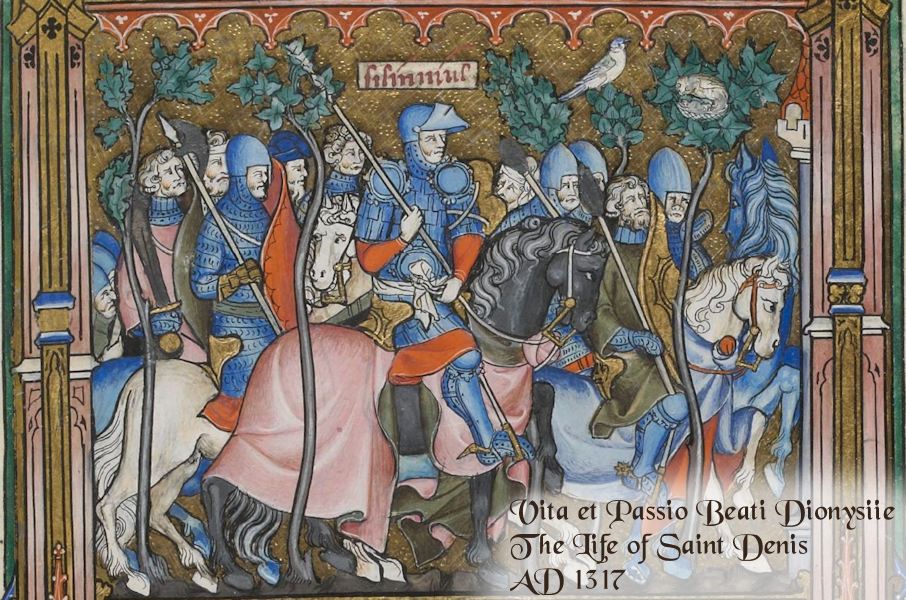 sisinnius
Vita et Passio Beati Dionysiie
The Life of Saint Denis
AD 1317